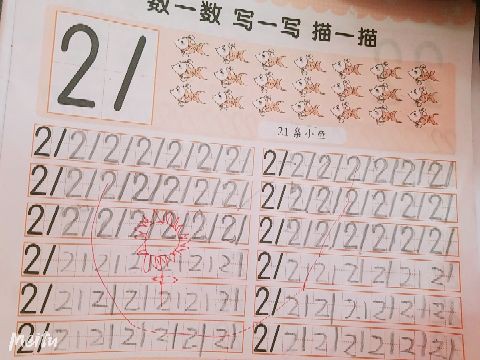 数一数 写一写 描一描
21
21条小鱼
21 21 21 21 21 21 21 21 21 21 21 21 21 21 21
21 21 21 21 21 21 21 21 21 21 21 21 21 21 21
21 21 21 21 21 21 21 21 21 21 21 21 21 21 21
21 21 21 21 21 21 21 21 21 21 21 21 21 21
21 21 21 21 21 21 21 21 21 21 21 21 21 21
21 21 21 21 21 21 21 21 21 21 21 21 21 21
Meitu